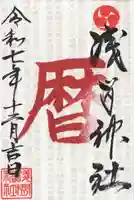 浅間神社
暦
令和七年十二月吉日